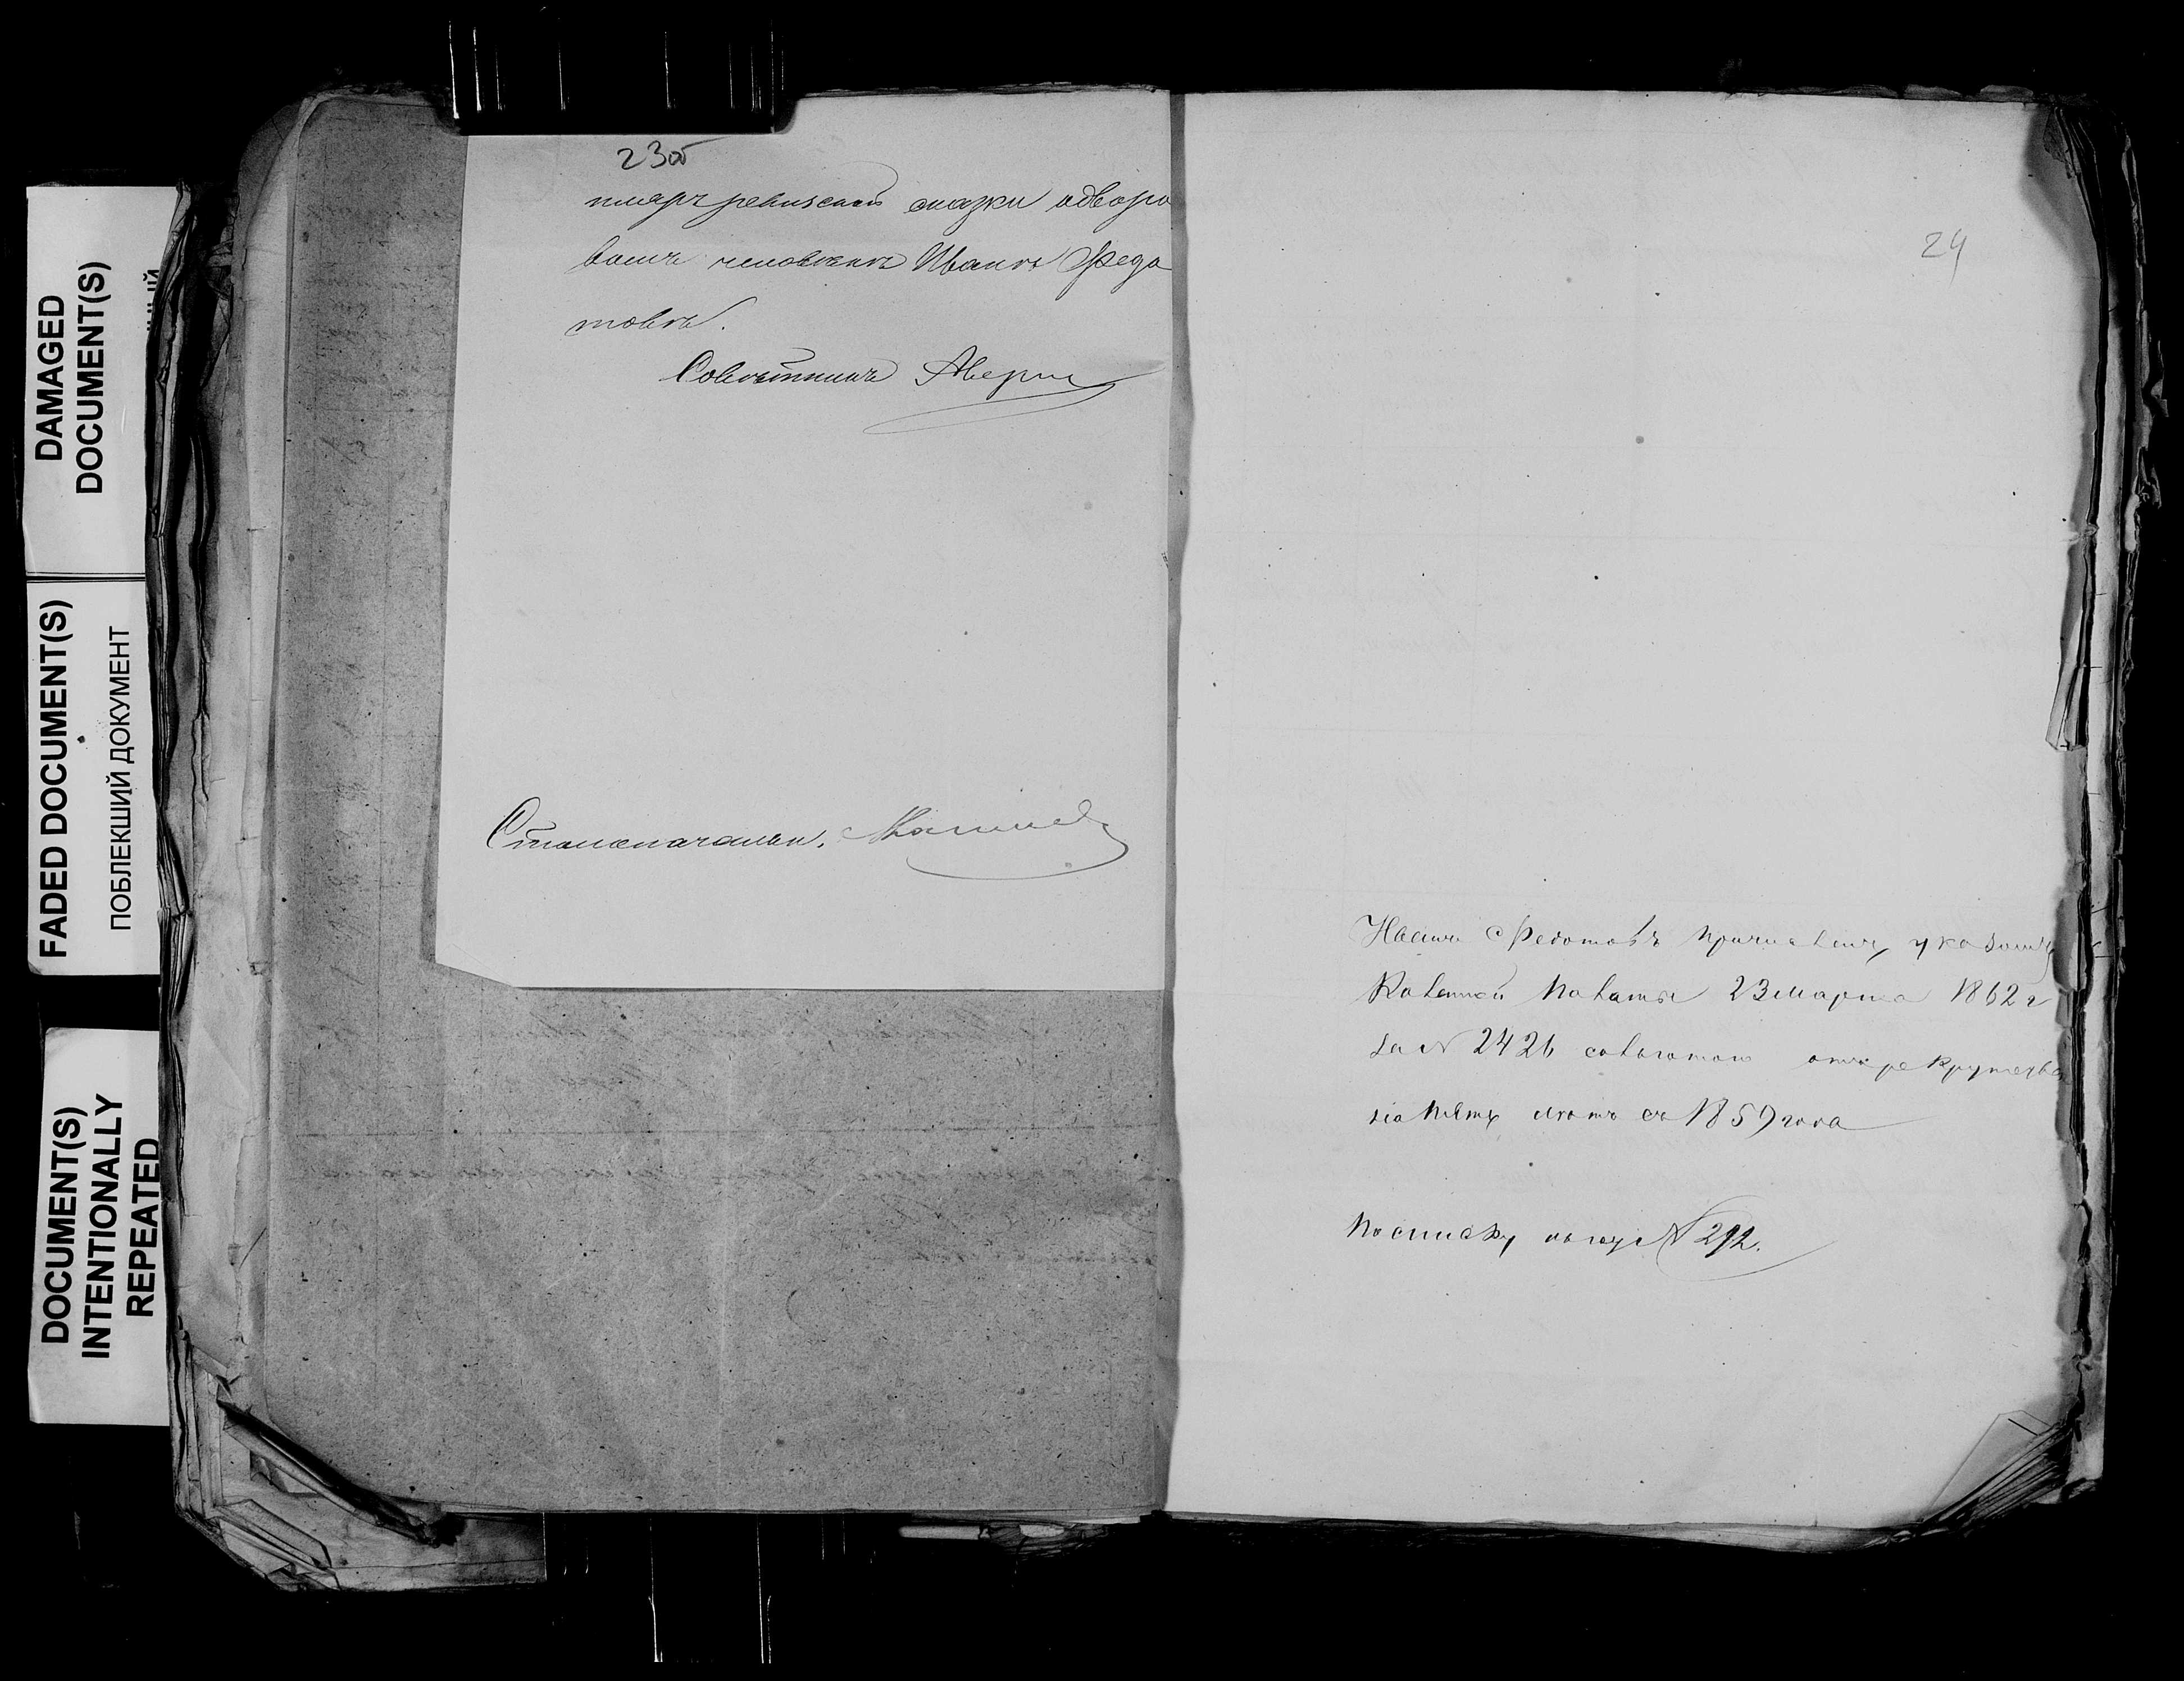 DAMAGED
DOCUMENT(S)
FADED DOCUMENT(S)
ПОБЛЕКШИЙ ДОКУМЕНТ
DOCUMENT(S)
INTENTIONALLY
REPEATED
23об
пляръ ревизской сказки одворо
вомъ человѣкѣ Иванѣ Федо
товѣ.
Совѣтникъ
Столоначальн.
24
Иванъ Федотовъ причисленъ указомъ
Казенной Палаты 23 Марта 1862 г
за N 2426 сольготою отъ рекрутства
на пять лѣтъ съ 1859 года
По списку N 292.